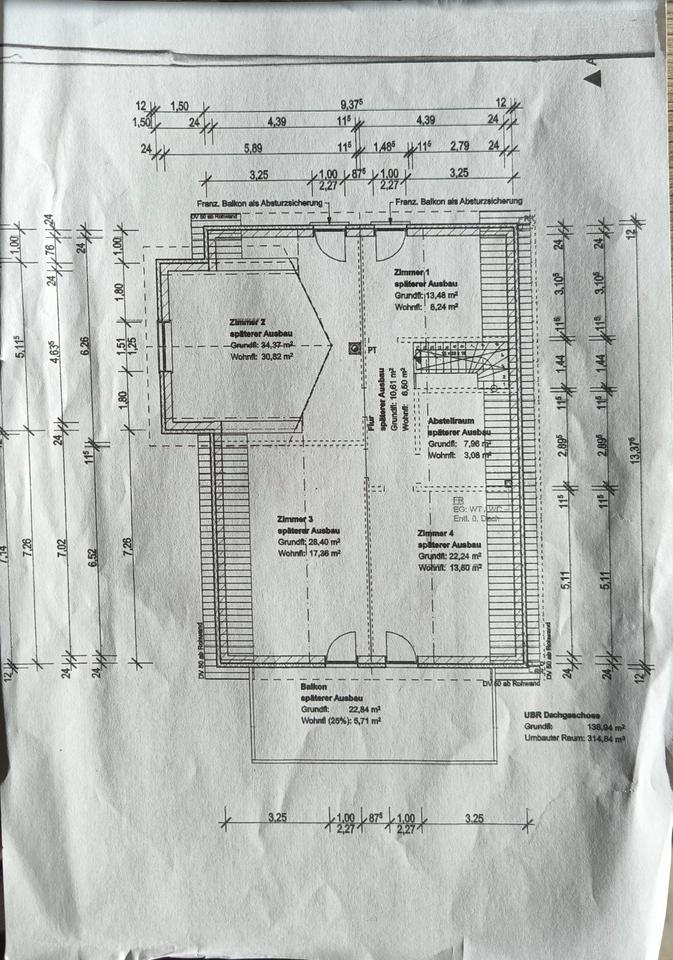 A
12 1,50 9,37⁵ 12
1,50 24 4,39 11⁵ 4,39 24
24 5,89 11⁵ 1,48⁵ 11⁵ 2,79 24
3,25 1,00 87⁵ 1,00 3,25
2,27 2,27
Franz. Balkon als Absturzsicherung
Franz. Balkon als Absturzsicherung
DV 50 ab Rohwand
Zimmer 1
späterer Ausbau
Grundfl: 13,48 m²
Wohnfl: 8,24 m²
Zimmer 2
späterer Ausbau
Grundfl: 34,37 m²
Wohnfl: 30,82 m²
PT
Flur
späterer Ausbau
Grundfl: 10,61 m²
Wohnfl: 6,60 m²
Abstellraum
späterer Ausbau
Grundfl: 7,96 m²
Wohnfl: 3,08 m²
FR
EG: WT, WC
Entl. ü. Dach
Zimmer 3
späterer Ausbau
Grundfl: 28,40 m²
Wohnfl: 17,36 m²
Zimmer 4
späterer Ausbau
Grundfl: 22,24 m²
Wohnfl: 13,60 m²
DV 50 ab Rohwand
DV 50 ab Rohwand
DV 60 ab Rohwand
Balkon
späterer Ausbau
Grundfl: 22,84 m²
Wohnfl (25%): 5,71 m²
UBR Dachgeschoss
Grundfl: 138,94 m²
Umbauter Raum: 314,84 m²
7,14 12
1,00 5,11⁵ 7,26
24 76 24 4,63⁵ 24 7,02 24
24 6,26 11⁵ 6,52 24
1,00 1,80 1,51 1,25 1,80 7,26
24 3,10⁵ 11⁵ 1,44 11⁵ 2,89⁵ 11⁵ 5,11 24
24 3,10⁵ 11⁵ 1,44 11⁵ 2,89⁵ 11⁵ 5,11 24
12 13,37⁵ 12
3,25 1,00 87⁵ 1,00 3,25
2,27 2,27